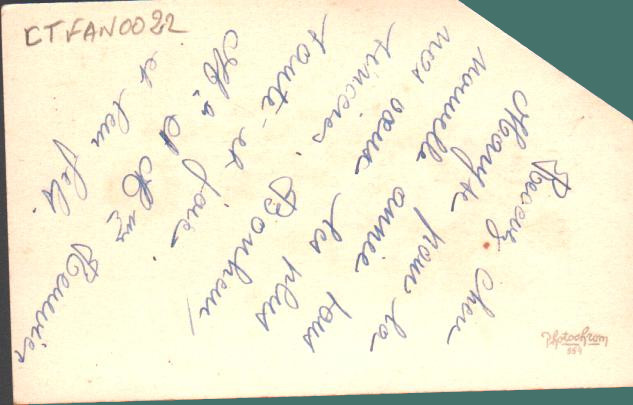 CTFAN0022
Recevez cher
Maryse pour la
nouvelle année tous
nos vœux les plus
sincères. Bonheur,
santé et joie.
Mr et Mme
et leur fils.
Photochrom